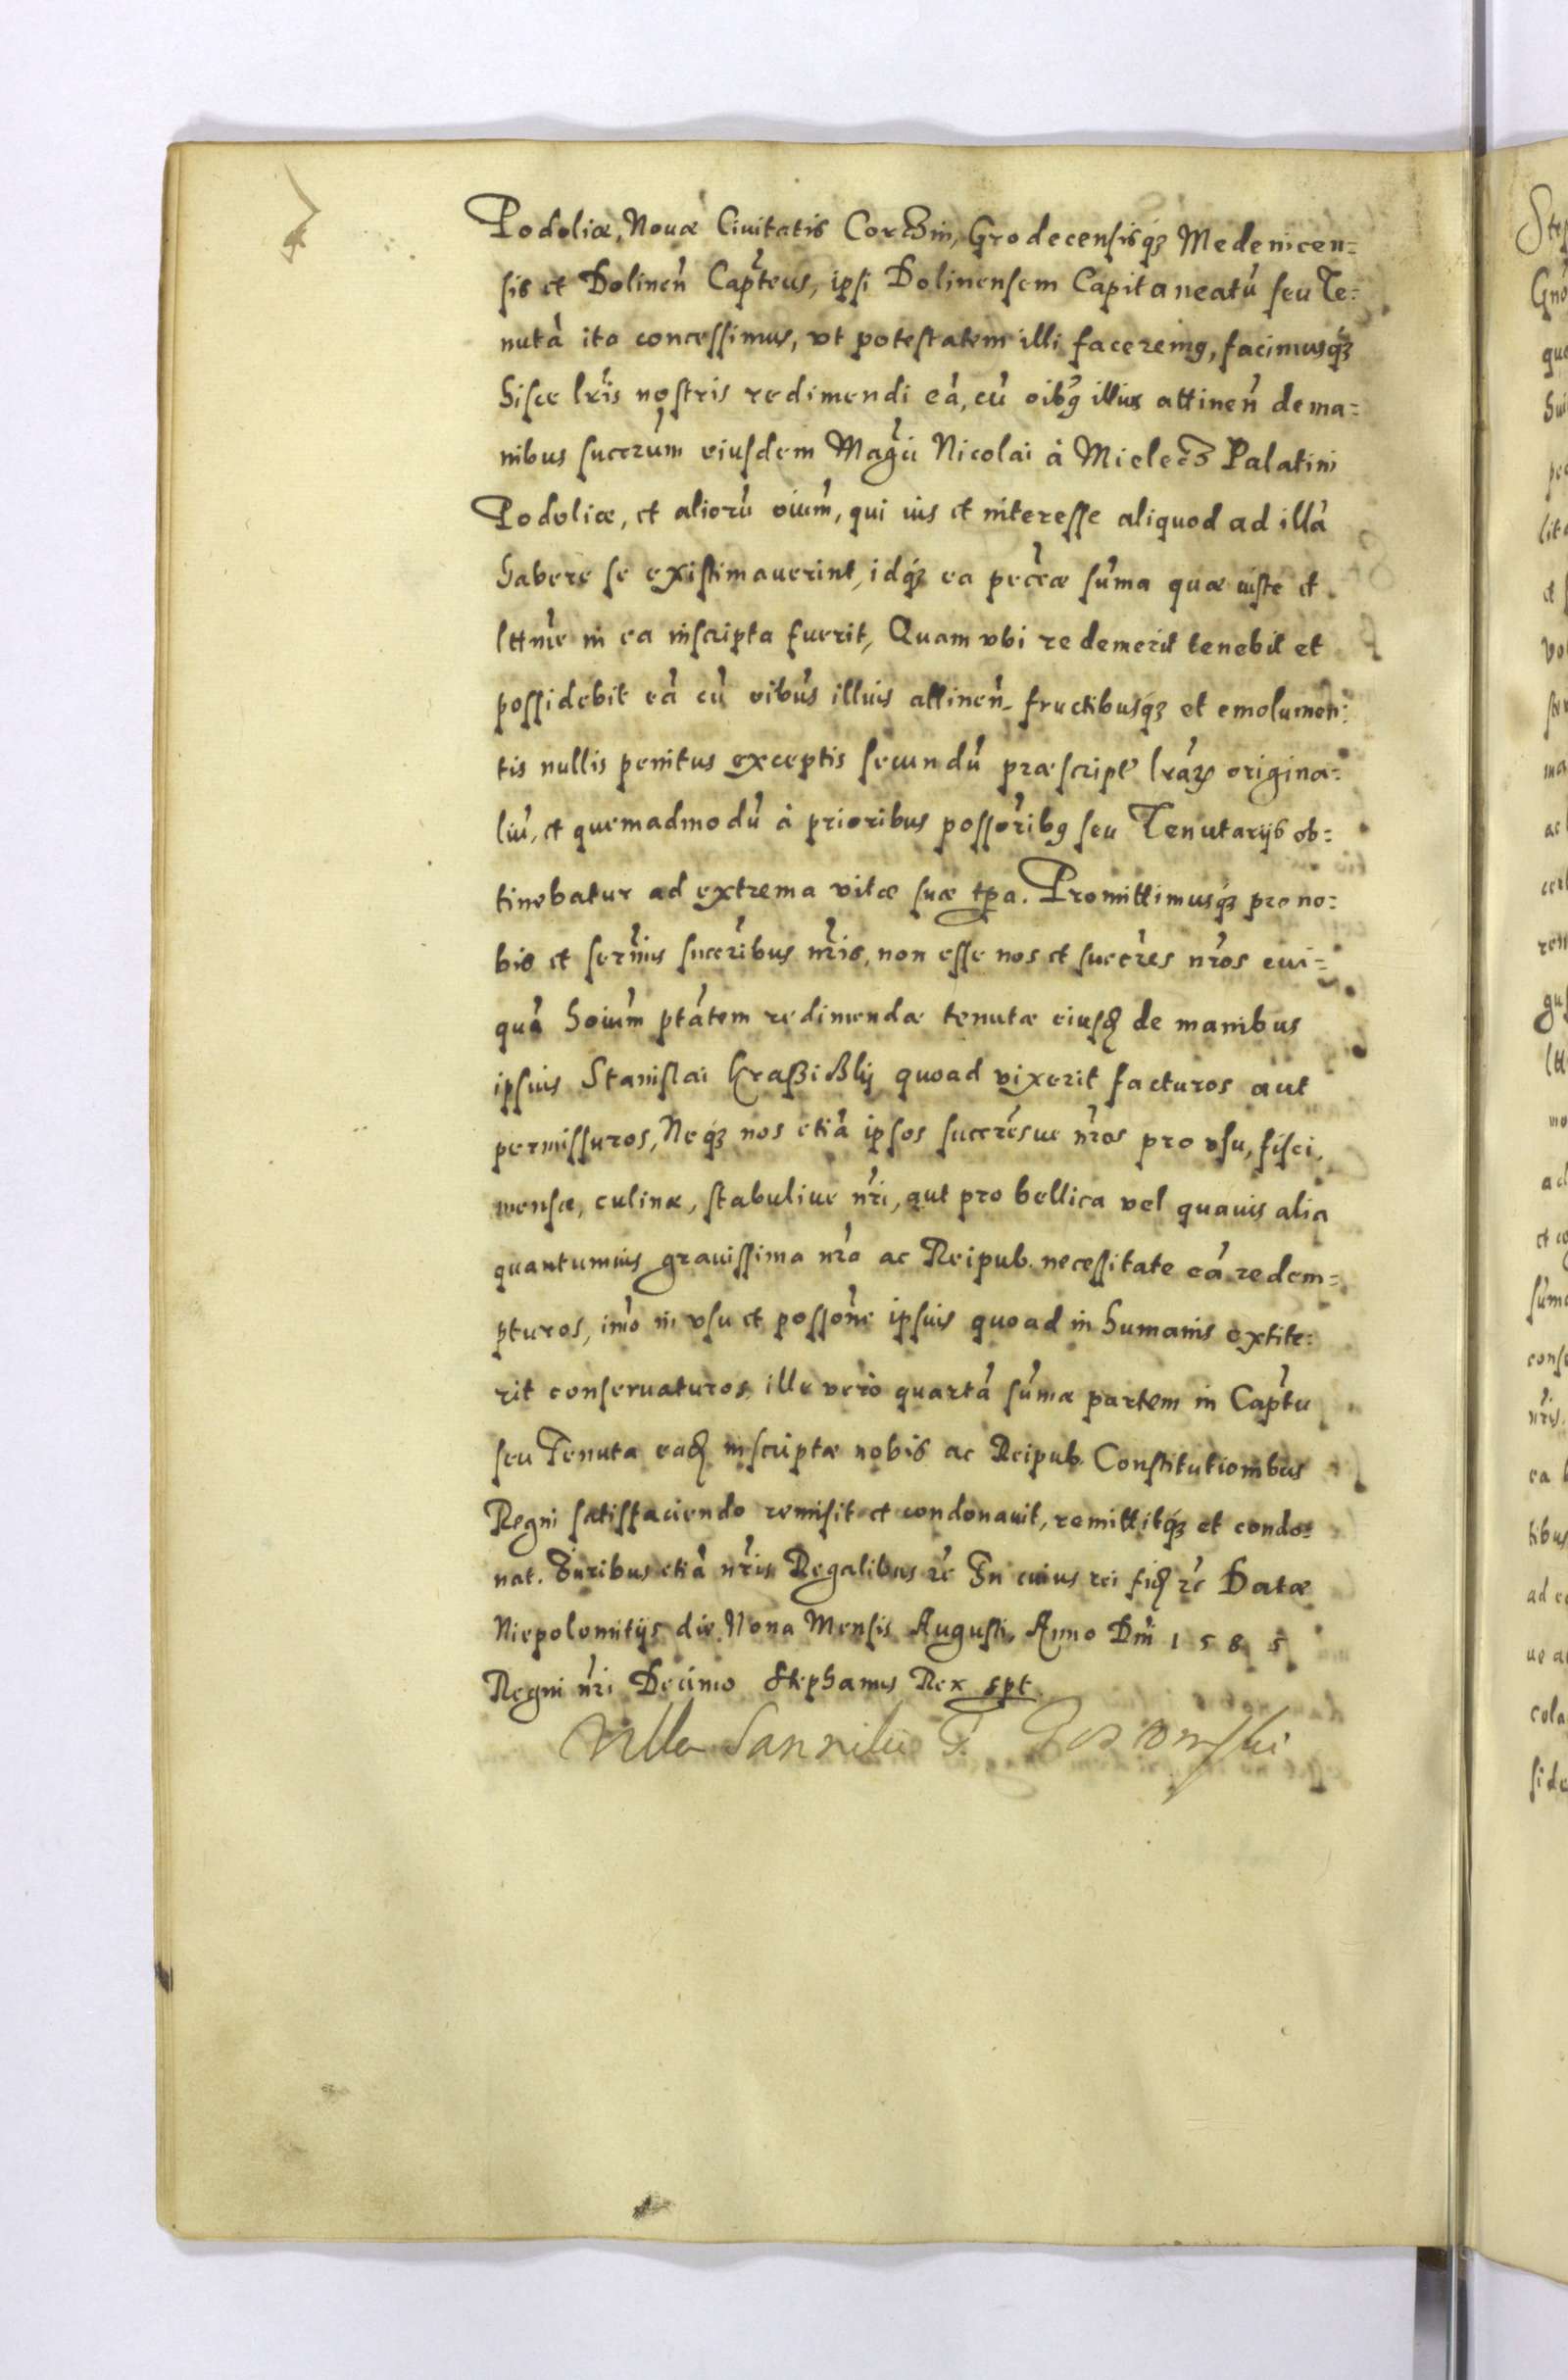 Podoliæ, Nouæ Ciuitatis Corczin, Grodecensisq́ꝫ Medenicen=
sis et Dolinen̄ Capt̄eus, ipsi Dolinensem Capitaneatū seu Te=
nutā ita concessimus, vt potestatem illi faceremꝰ, facimusq́ꝫ
hisce lr̄is nostris redimendi eā, cū oibꝰ illius attinen̄ de ma=
nibus succrum̄ eiusdem Magc̄i Nicolai à Mielecz Palatini
Podoliæ, et aliorū oium̄, qui ius et interesse aliquod ad illā
habere se existimauerint, idq́ꝫ ea pec̄iæ sum̄a quæ iuste et
lttm̄e in ea inscripta fuerit, Quam vbi redemerit tenebit et
possidebit eā cū oibus̄ illius attinen̄ fructibusq́ꝫ et emolumen=
tis nullis penitus exceptis secundū præscript lrāꝝ origina=
liū, et quemadmodū à prioribus possor̄ibꝰ seu Tenutarijs ob=
tinebatur ad extrema vitæ suæ tp̱a. Promittimusq́ꝫ pro no=
bis et serm̄is succr̄ibus nr̄is, non esse nos et succr̄es nr̄os cui=
quā hoium̄ ptātem redimendæ tenutæ eiusd̄ de manibus
ipsius Stanislai Kraßiczkij quoad vixerit facturos aut
permissuros, Neq́ꝫ nos etiā ipsos succr̄esue nr̄os pro vsu, fisci,
mensæ, culinæ, stabuliue nr̄i, aut pro bellica vel quauis alia
quantumuis grauissima nr̄a ac Reipub. necessitate eā redem=
pturos, imō in vsu et posson̄e ipsius quoad in humanis extite=
rit conseruaturos, ille verò quartā sum̄æ partem in Capt̄u
seu Tenuta ead̄ inscriptæ nobis ac Reipub. Constitutionibus
Regni satisfaciendo remisit et condonauit, remittitq́ꝫ et condo=
nat. Iuribus etiā nr̄is Regalibus ꝛc̄ In cuius rei fid̄ ꝛc̄ Datæ
Niepolomitijs die Nona Mensis Augusti, Anno Dn̄i 1585
Regni nr̄i Decimo Stephanus Rex sp̱t